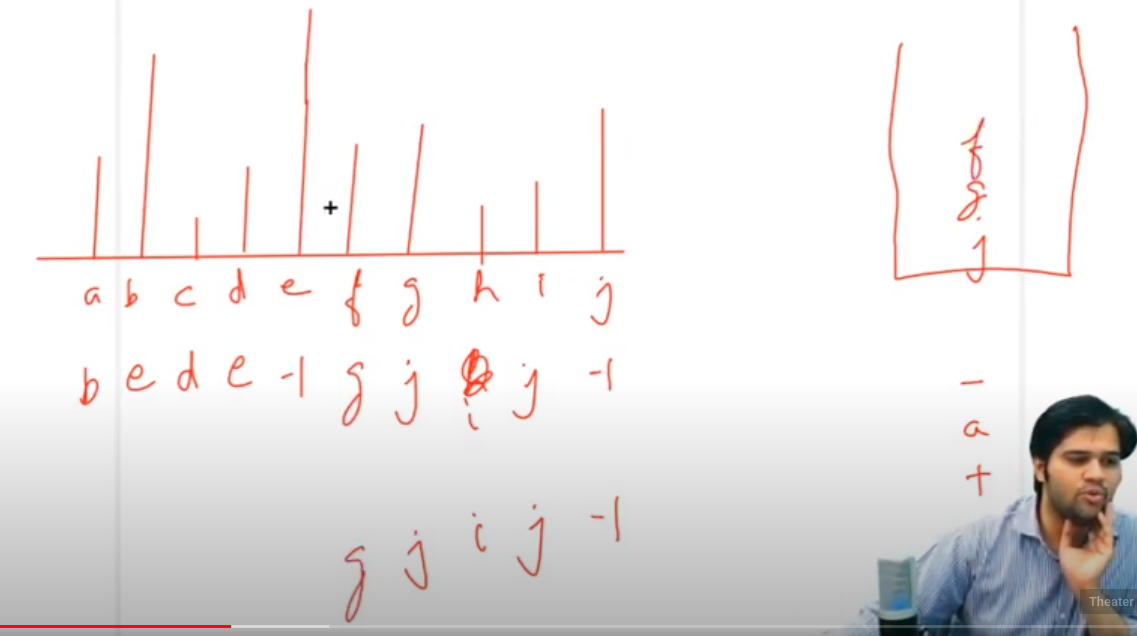 a b c d e f g h i j
b e d e -1 g j i j -1
g j i j -1
f
g
j
-
a
+
Theater